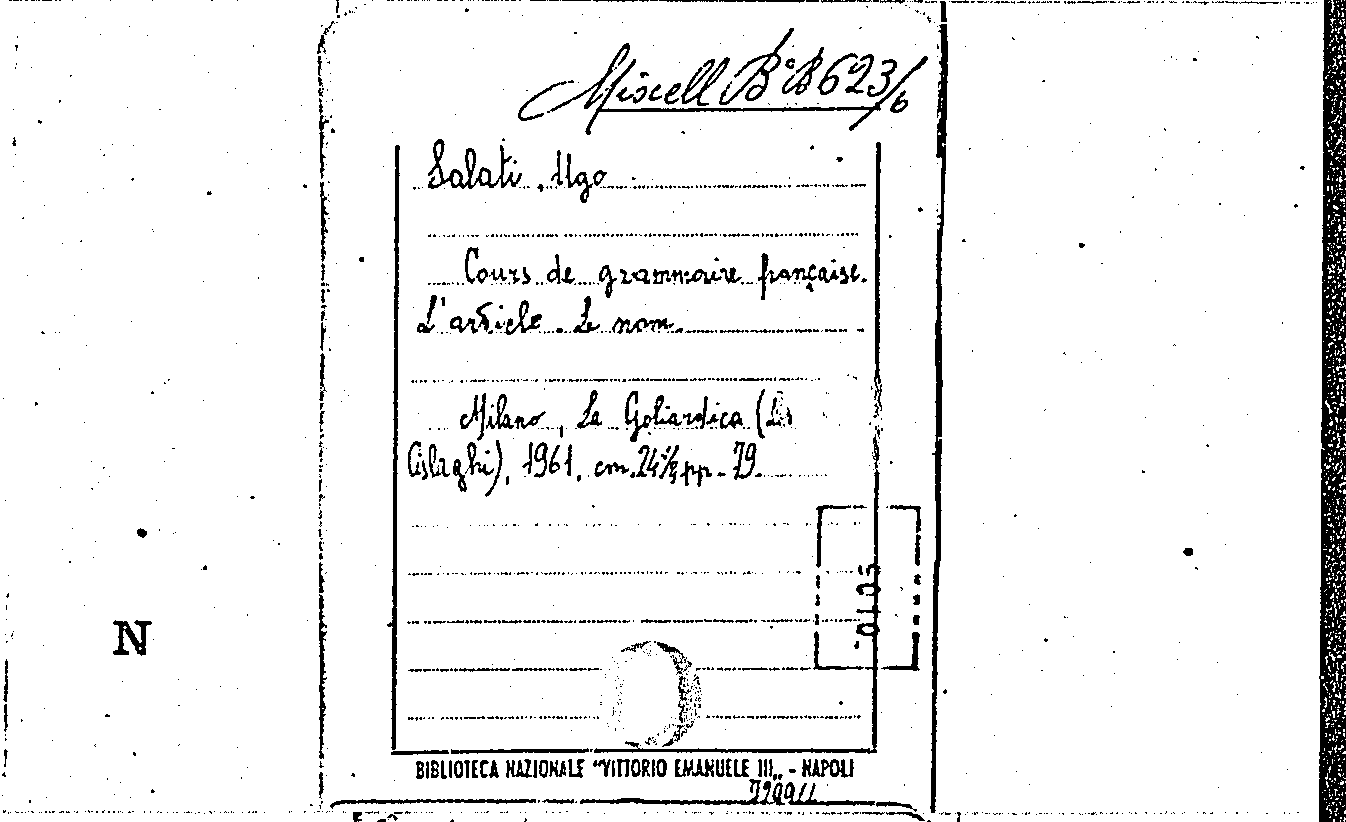 Miscell B.B 623/6
Salati, Ugo
Cours de grammaire française.
L'article. Le nom.
Milano, La Goliardica (
Cislaghi), 1961, cm. 24½ pp. 79.
N
BIBLIOTECA NAZIONALE "VITTORIO EMANUELE III„ - NAPOLI